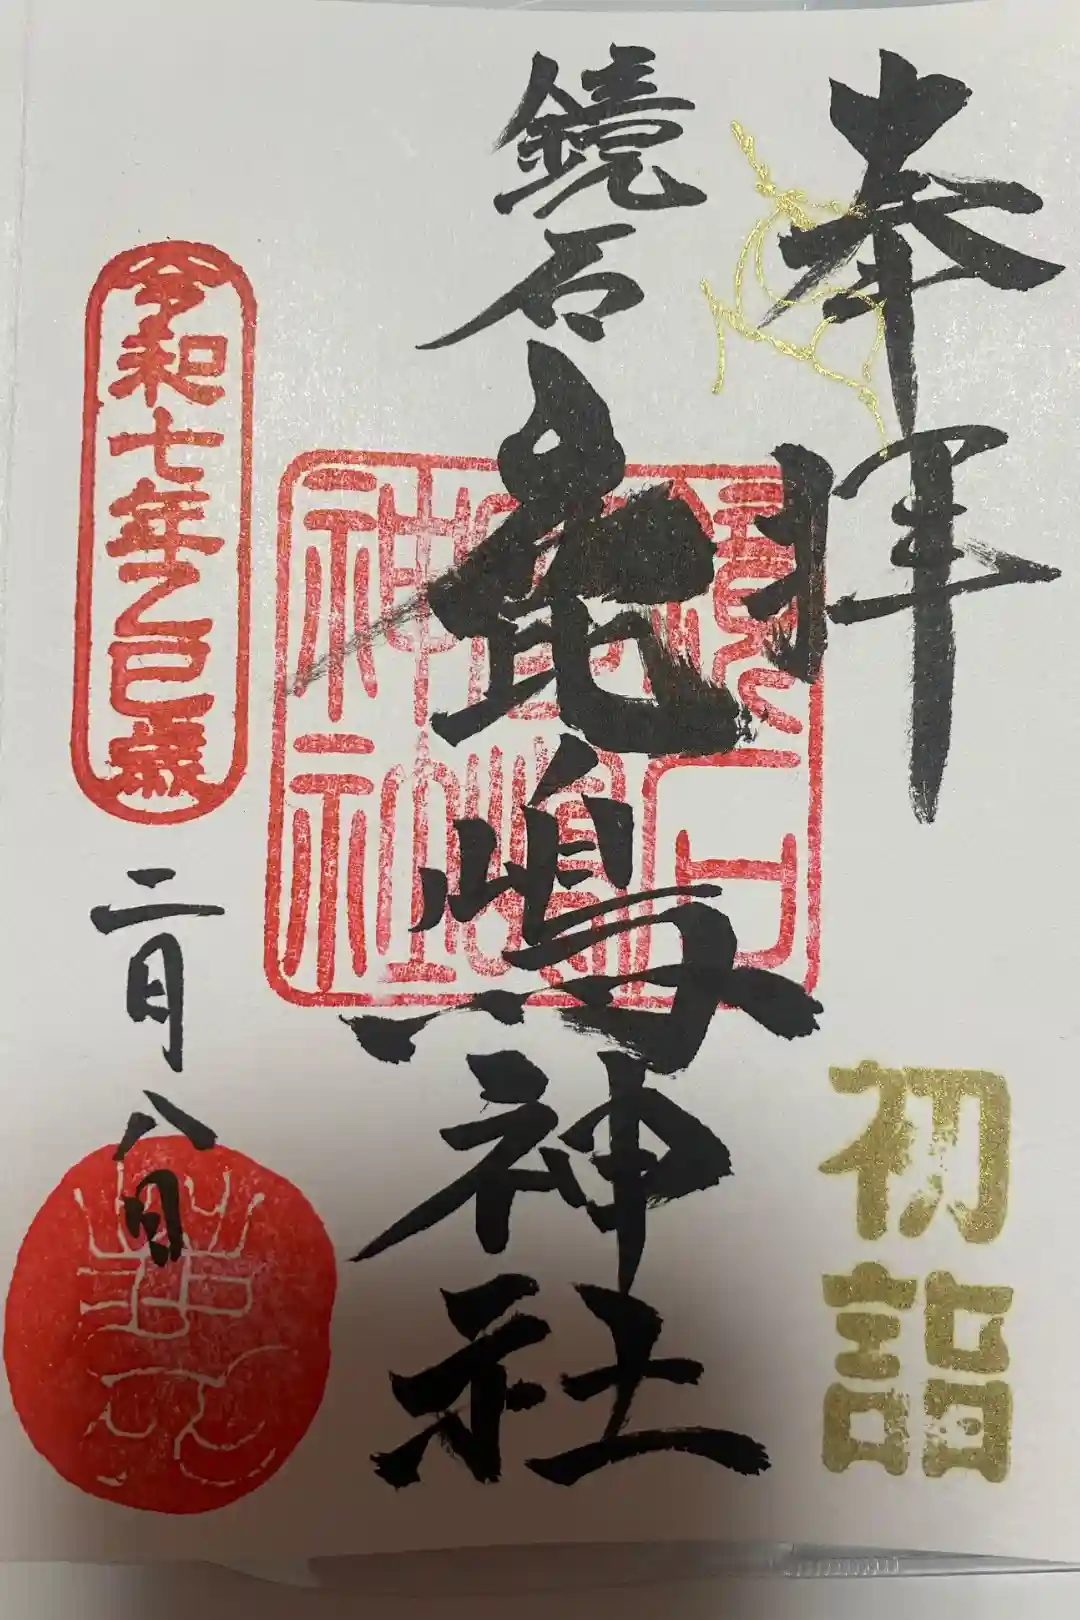 奉拝
初詣
鏡石
鹿嶋神社
鏡石
鹿嶋
神社
令和七年乙巳歳
二月八日